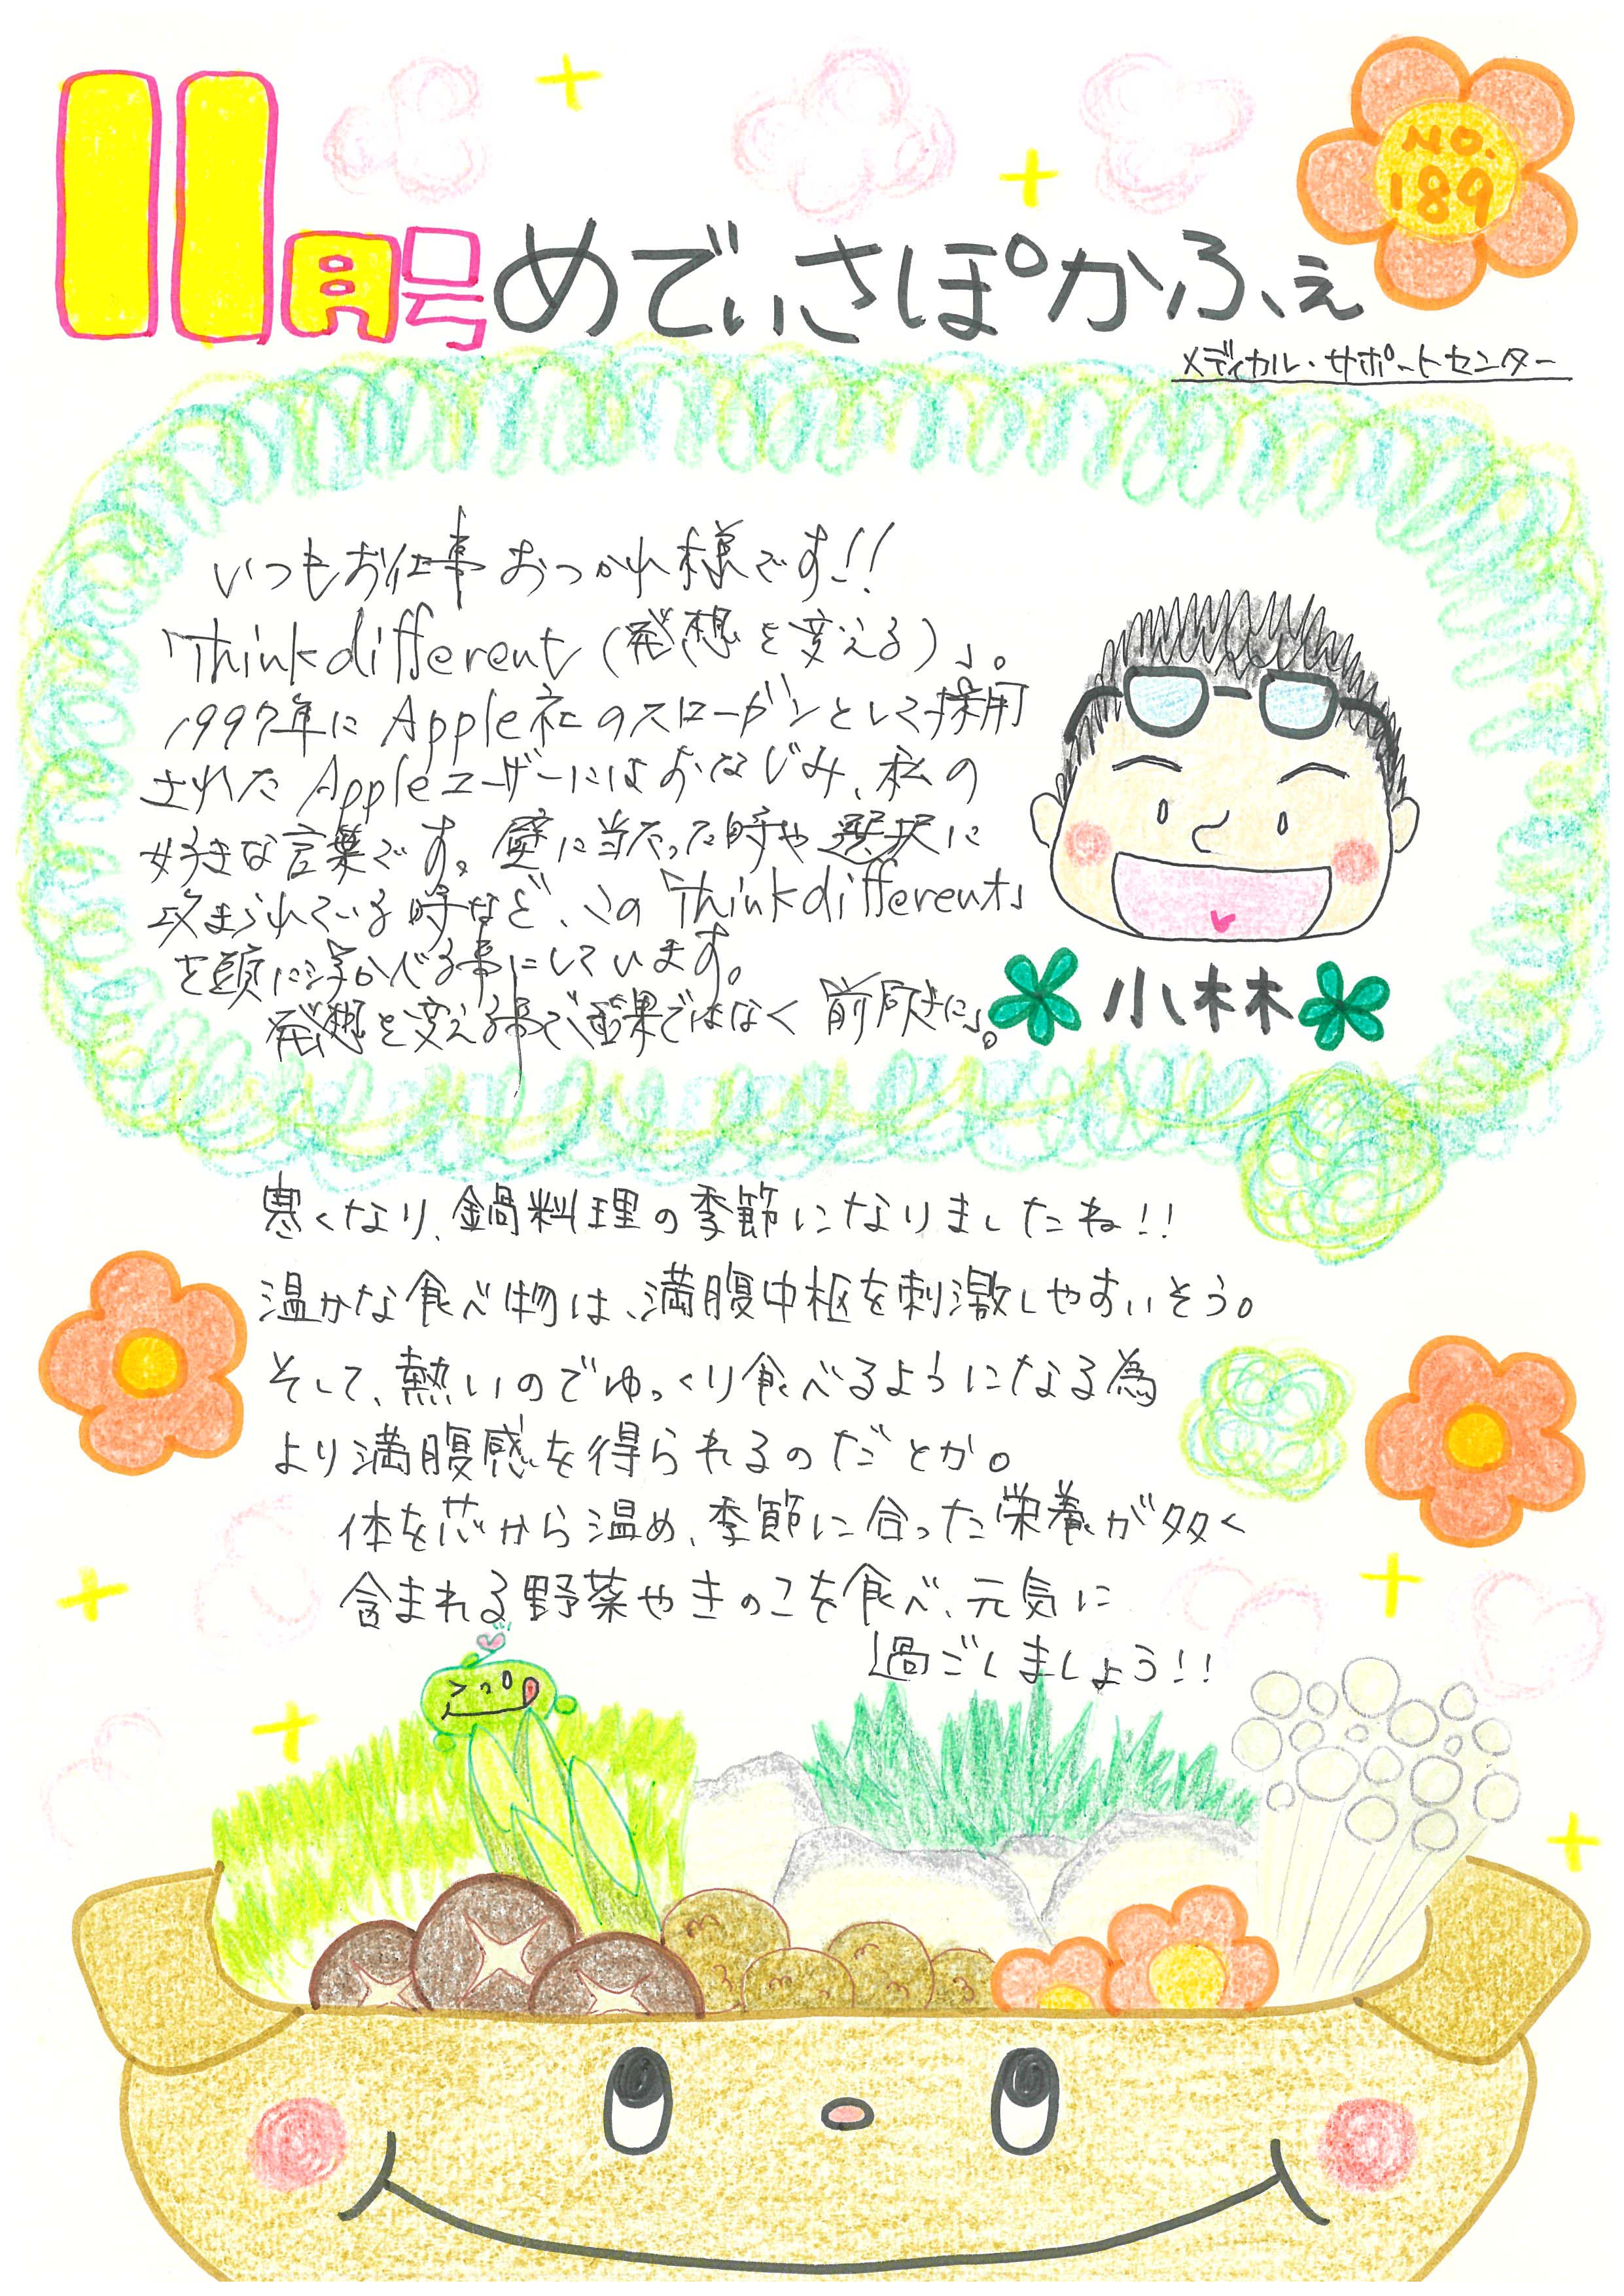 11月号 めでぃさぽかふぇ
NO.
189
メディカル・サポートセンター
いつもお仕事おつかれ様です!!
「Think different (発想を変える)」。
1997年にApple社のスローガンとして採用
されたAppleユーザーにはおなじみ、私の
好きな言葉です。壁に当たった時や選択に
攻まられている時など、この「Think different」
を頭に浮かべる事にしています。
発想を変える事で、結果ではなく「前向きに」。
小林
寒くなり、鍋料理の季節になりましたね!!
温かな食べ物は、満腹中枢を刺激しやすいそう。
そして、熱いのでゆっくり食べるようになる為
より満腹感を得られるのだとか。
体を芯から温め、季節に合った栄養が多く
含まれる野菜やきのこを食べ、元気に
過ごしましょう!!